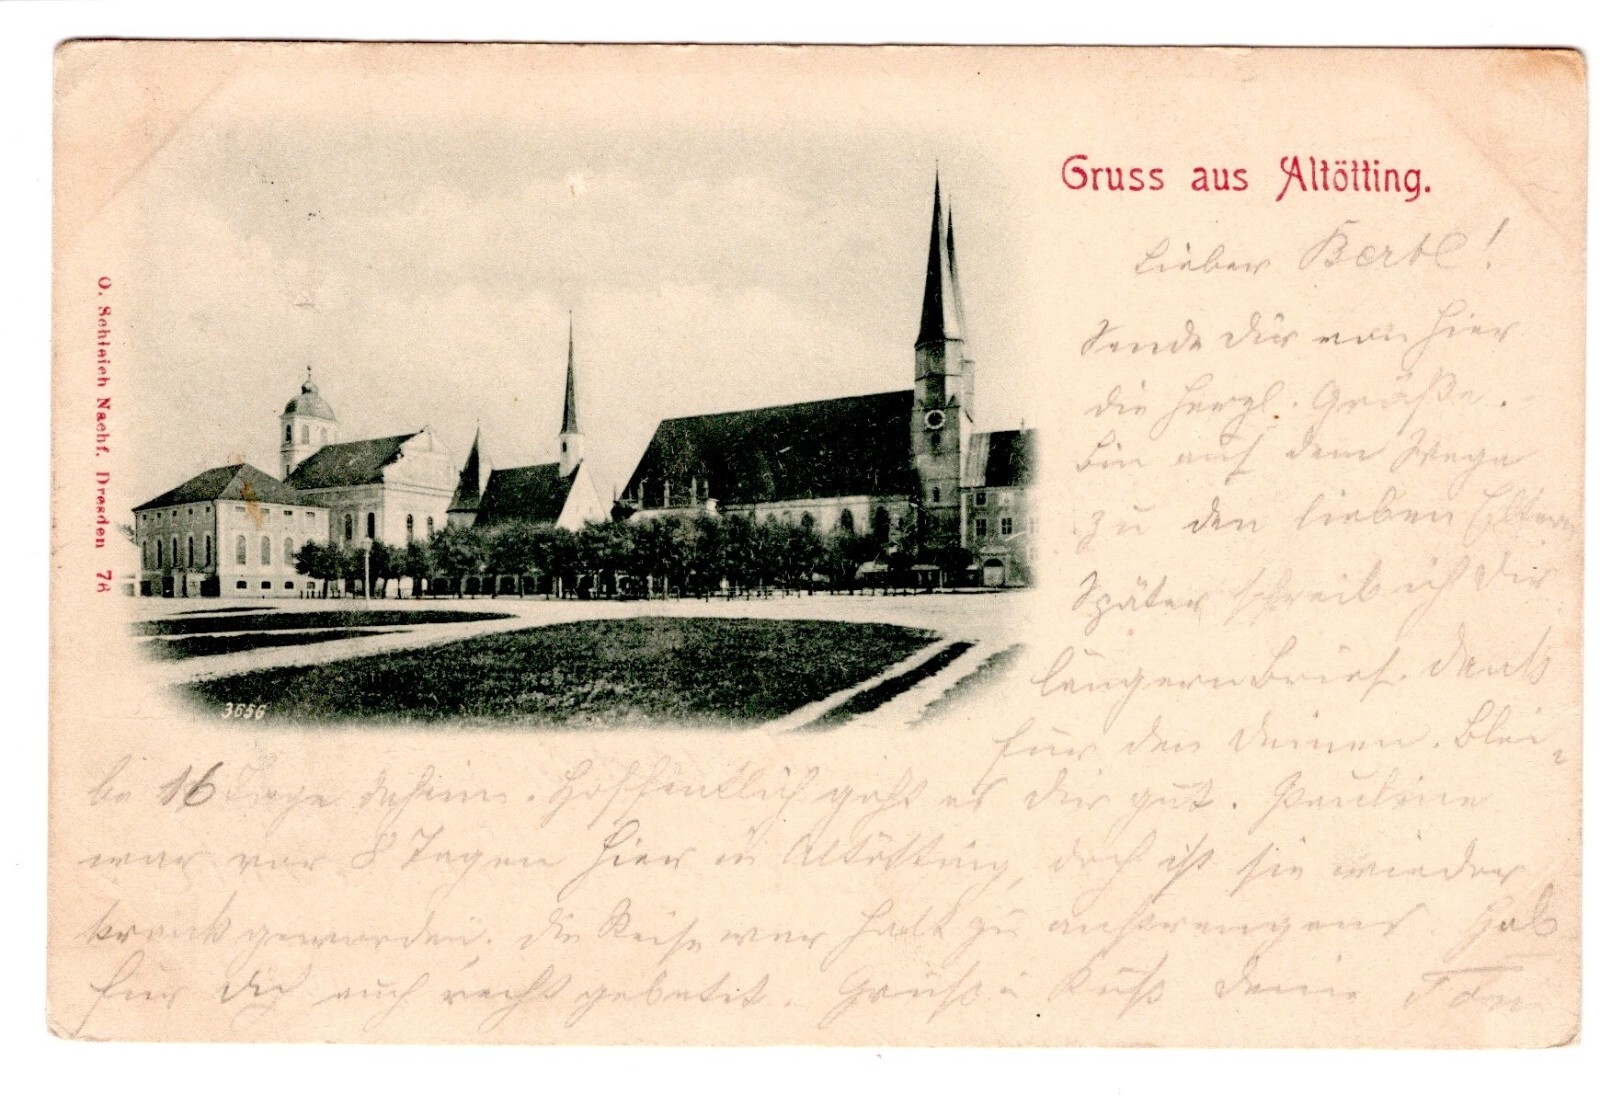 Gruss aus Altötting.
Lieber Bertl!
Sende Dir von hier
die herzl. Grüße.
Bin auf dem Wege
zu den lieben Eltern
Später schreib ich Dir
längern Brief. Dank
für den Deinen. Blei-
be 16 Tage daheim. Hoffentlich geht es Dir gut. Pauline
war vor 8 Tagen hier in Altötting, doch ist sie wieder
krank geworden. Die Reise war halt zu anstrengend. Hab
für Dich auch recht gebetet. Gruß u Kuß Deine Toni
O. Schleich Nachf. Dresden 76
3656